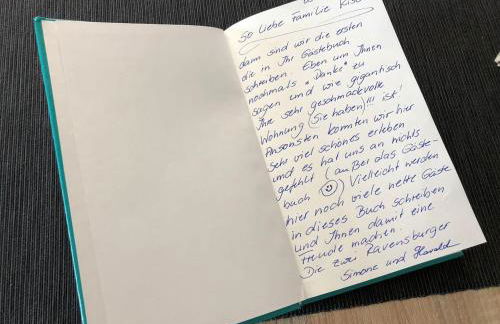 So liebe Familie
dann sind wir die ersten
die in Ihr Gästebuch
schreiben. Eben um Ihnen
nochmals "Danke" zu
sagen und wie gigantisch
Ihre sehr geschmackvolle
Wohnung (Sie haben)!!! ist!
Ansonsten konnten wir hier
sehr viel schönes erleben
und es hat uns an nichts
gefehlt (außer das Gäste-
buch ☺) Vielleicht werden
hier noch viele nette Gäste
in dieses Buch schreiben
und Ihnen damit eine
Freude machen.
Die zwei Ravensburger
Simone und Harald